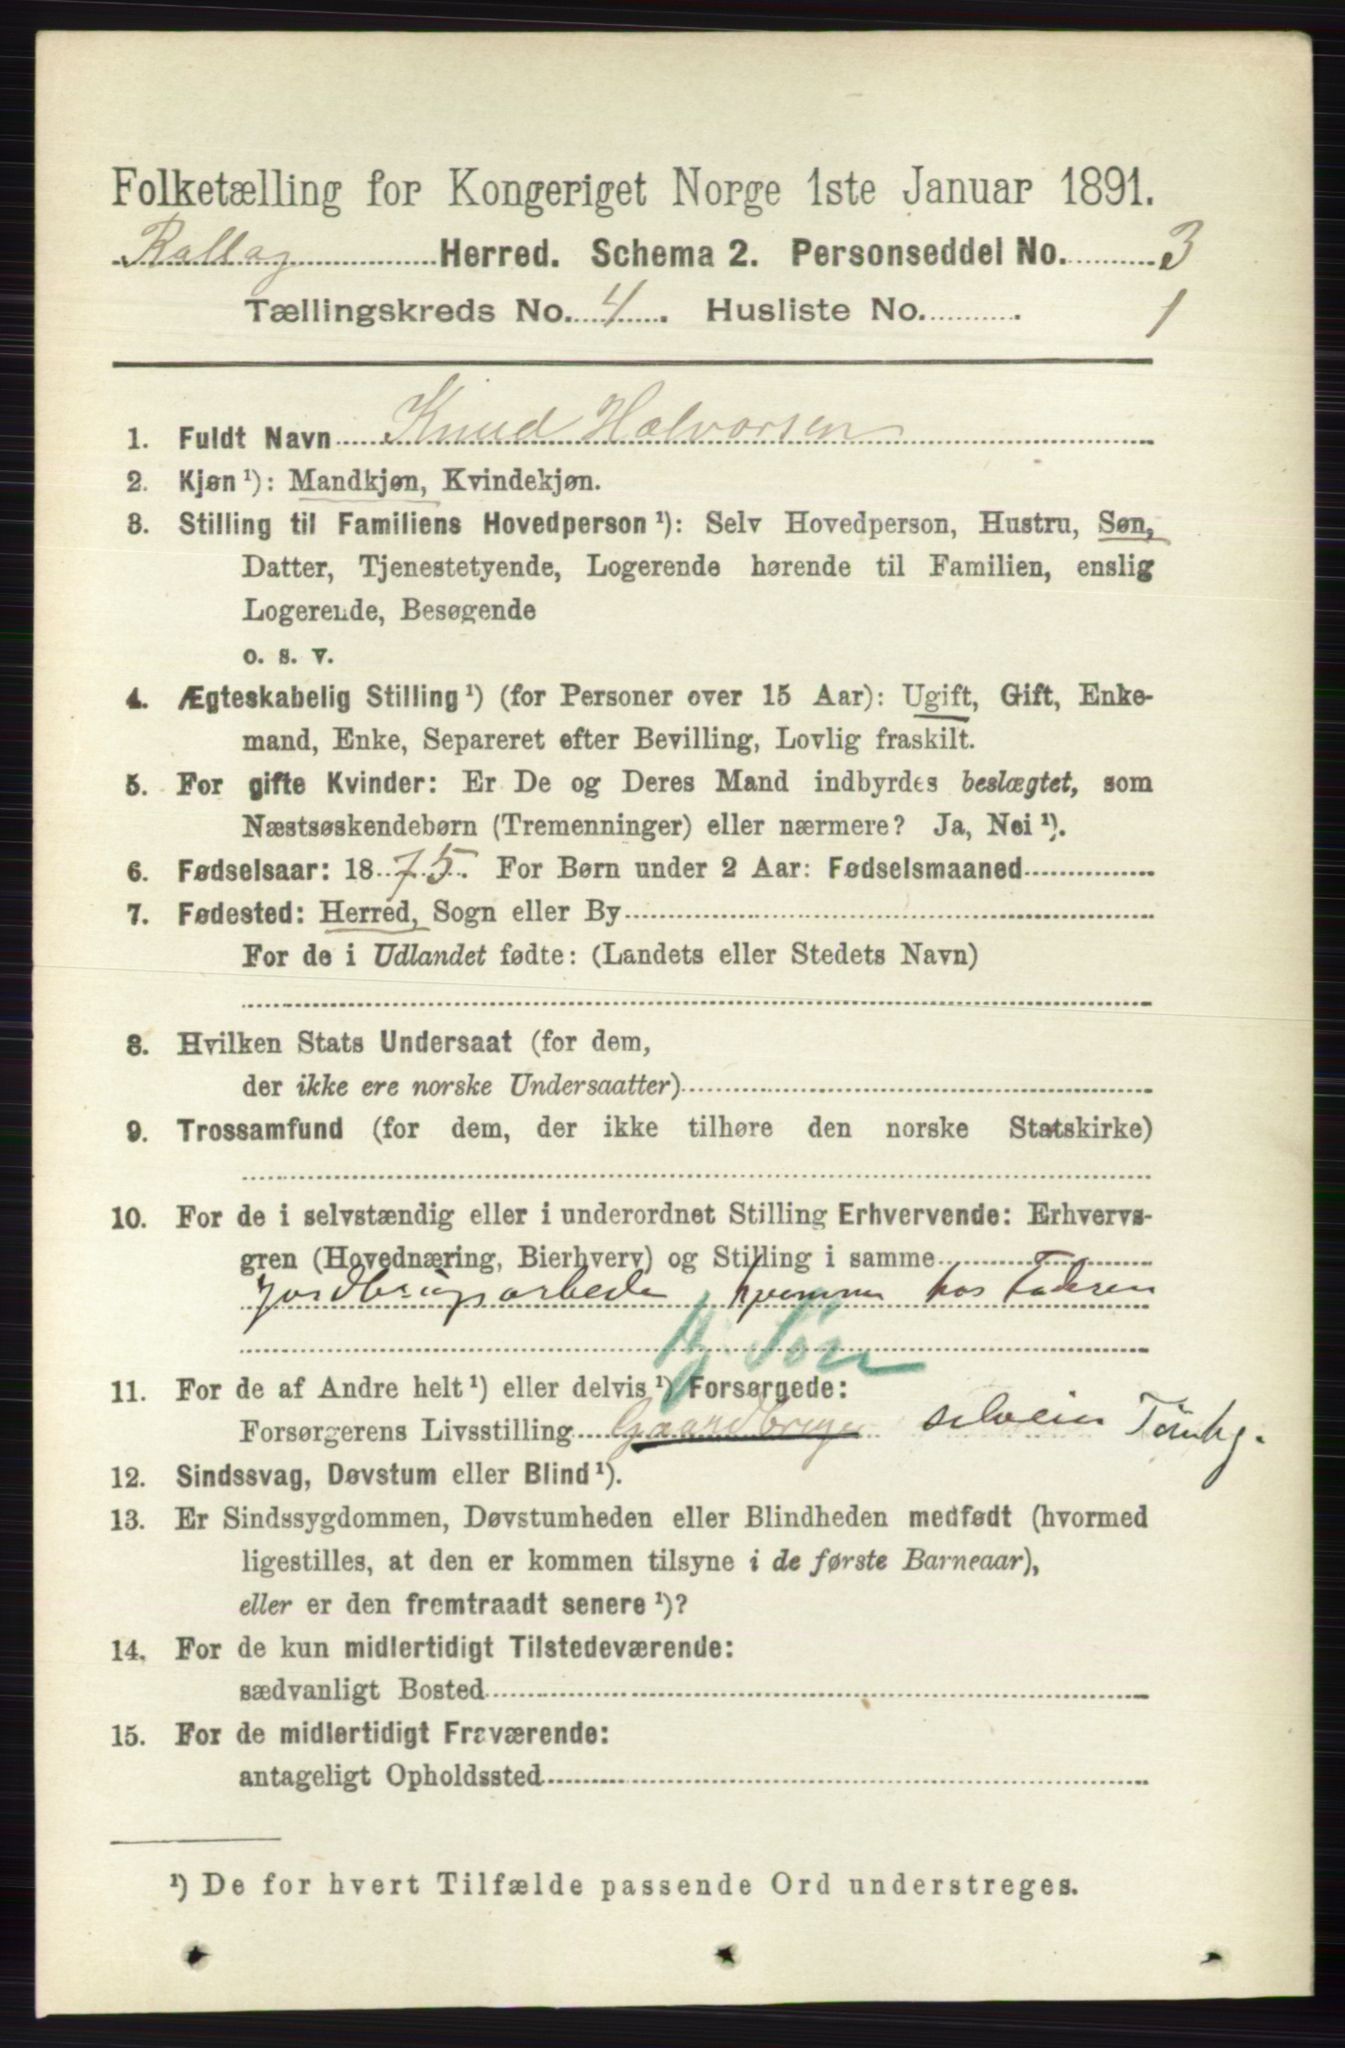 Folketælling for Kongeriget Norge 1ste Januar 1891.
Rollag Herred. Schema 2. Personseddel No. 3
Tællingskreds No. 4. Husliste No. 1
1. Fuldt Navn Knud Halvorsen
2. Kjøn ¹): Mandkjøn, Kvindekjøn.
3. Stilling til Familiens Hovedperson ¹): Selv Hovedperson, Hustru, Søn,
Datter, Tjenestetyende, Logerende hørende til Familien, enslig
Logerende, Besøgende
o. s. v.
4. Ægteskabelig Stilling ¹) (for Personer over 15 Aar): Ugift, Gift, Enke-
mand, Enke, Separeret efter Bevilling, Lovlig fraskilt.
5. For gifte Kvinder: Er De og Deres Mand indbyrdes beslægtet, som
Næstsøskendebørn (Tremenninger) eller nærmere? Ja, Nei ¹).
6. Fødselsaar: 1875. For Børn under 2 Aar: Fødselsmaaned
7. Fødested: Herred, Sogn eller By
For de i Udlandet fødte: (Landets eller Stedets Navn)
8. Hvilken Stats Undersaat (for dem,
der ikke ere norske Undersaatter)
9. Trossamfund (for dem, der ikke tilhøre den norske Statskirke)
10. For de i selvstændig eller i underordnet Stilling Erhvervende: Erhvervs-
gren (Hovednæring, Bierhverv) og Stilling i samme
Jordbrugsarbeide hjemme hos Faderen
g. Søn
11. For de af Andre helt ¹) eller delvis ¹) Forsørgede:
Forsørgerens Livsstilling Gaardbruger selveier
12. Sindssvag, Døvstum eller Blind ¹).
13. Er Sindssygdommen, Døvstumheden eller Blindheden medfødt (hvormed
ligestilles, at den er kommen tilsyne i de første Barneaar),
eller er den fremtraadt senere ¹)?
14. For de kun midlertidigt Tilstedeværende:
sædvanligt Bosted
15. For de midlertidigt Fraværende:
antageligt Opholdssted
¹) De for hvert Tilfælde passende Ord understreges.